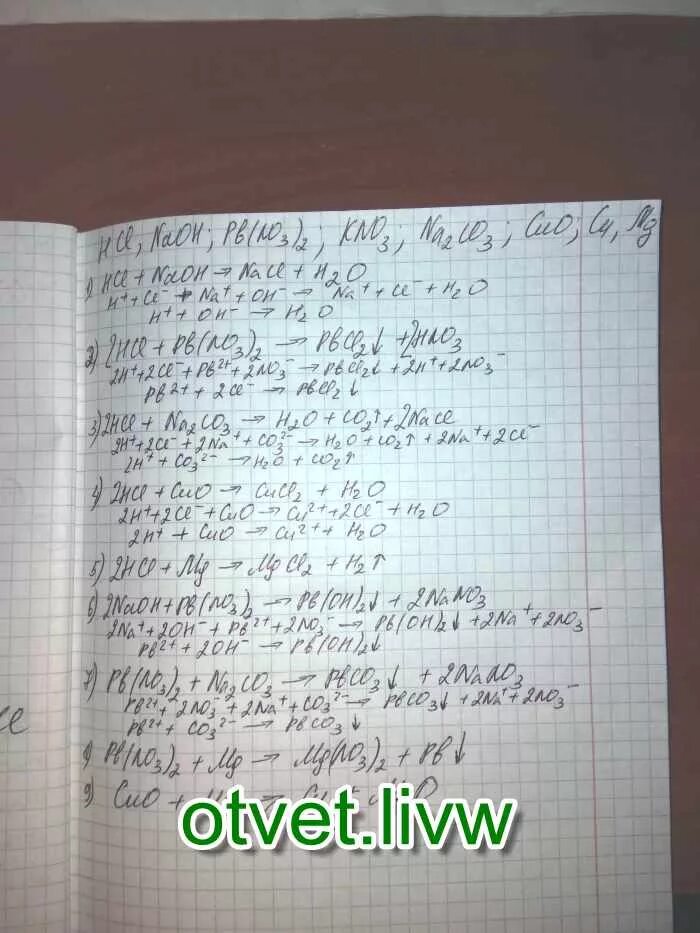 HCl; NaOH; Pb(NO3)2; KNO3; Na2CO3; CuO; Cu, Mg
1) HCl + NaOH → NaCl + H2O
H⁺ + Cl⁻ + Na⁺ + OH⁻ → Na⁺ + Cl⁻ + H2O
H⁺ + OH⁻ → H2O
2) 2HCl + Pb(NO3)2 → PbCl2↓ + 2HNO3
2H⁺ + 2Cl⁻ + Pb²⁺ + 2NO3⁻ → PbCl2↓ + 2H⁺ + 2NO3⁻
Pb²⁺ + 2Cl⁻ → PbCl2↓
3) 2HCl + Na2CO3 → H2O + CO2↑ + 2NaCl
2H⁺ + 2Cl⁻ + 2Na⁺ + CO3²⁻ → H2O + CO2↑ + 2Na⁺ + 2Cl⁻
2H⁺ + CO3²⁻ → H2O + CO2↑
4) 2HCl + CuO → CuCl2 + H2O
2H⁺ + 2Cl⁻ + CuO → Cu²⁺ + 2Cl⁻ + H2O
2H⁺ + CuO → Cu²⁺ + H2O
5) 2HCl + Mg → MgCl2 + H2↑
6) 2NaOH + Pb(NO3)2 → Pb(OH)2↓ + 2NaNO3
2Na⁺ + 2OH⁻ + Pb²⁺ + 2NO3⁻ → Pb(OH)2↓ + 2Na⁺ + 2NO3⁻
Pb²⁺ + 2OH⁻ → Pb(OH)2↓
7) Pb(NO3)2 + Na2CO3 → PbCO3↓ + 2NaNO3
Pb²⁺ + 2NO3⁻ + 2Na⁺ + CO3²⁻ → PbCO3↓ + 2Na⁺ + 2NO3⁻
Pb²⁺ + CO3²⁻ → PbCO3↓
8) Pb(NO3)2 + Mg → Mg(NO3)2 + Pb↓
9) CuO +
otvet.livw